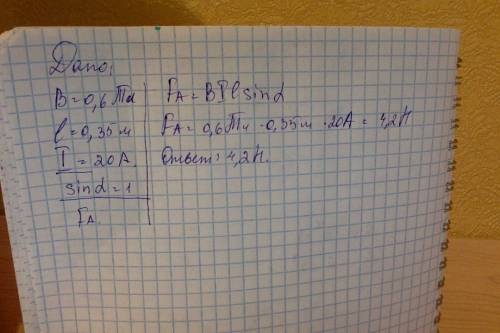 Дано:
B = 0,6 Тл
l = 0,35 м
I = 20 A
sinα = 1
FA
FA = BIl sinα
FA = 0,6 Тл · 0,35 м · 20 A = 4,2 Н
Ответ: 4,2 Н.